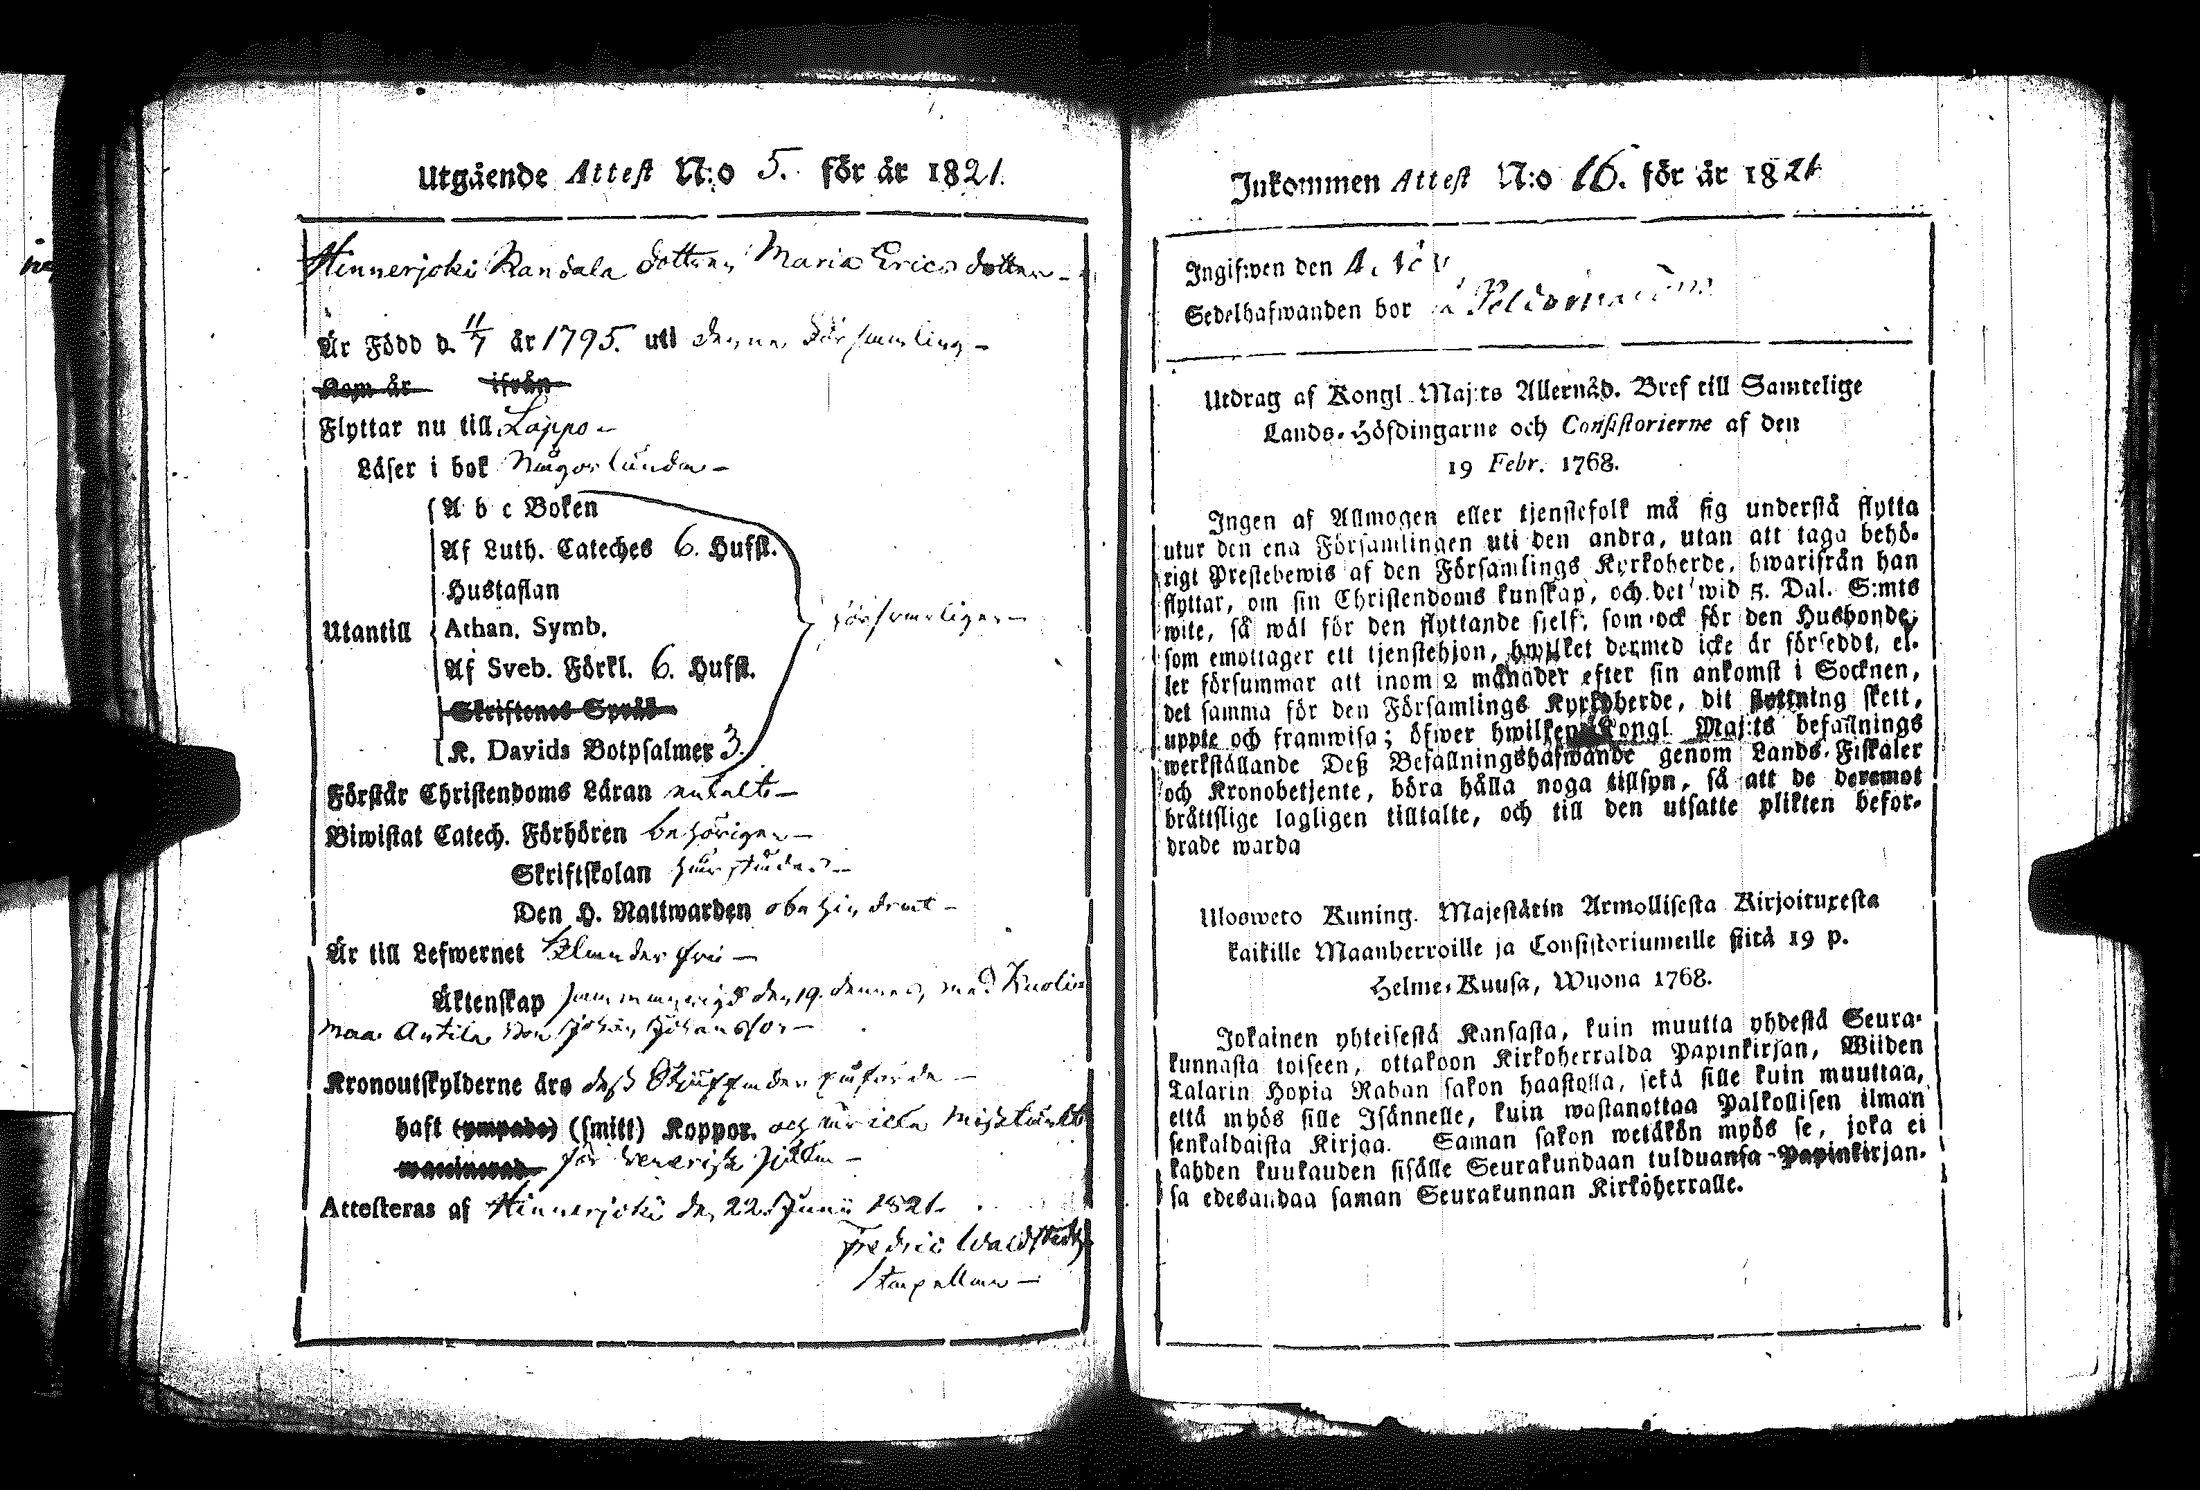 Utgående Attest N:o 5. för år 1821.
Hinnerjoki Randala dottren Maria Ericsdotter –
Är Född d. 11/7 år 1795. uti denna Församling –
Kom år ifrån
Flyttar nu till Lappo –
Läser i bok någorlunda –
A b c Boken
Af Luth. Cateches 6. Hufst.
Hustaflan
Utantill Athan. Symb. försvarligen –
Af Sveb. Förkl. 6. Hufst.
Skriftenes Språk
K. Davids Botpsalmer 3.
Förstår Christendoms Läran enkelt –
Biwistat Catech. Förhören behörigen –
Skriftskolan
Den H. Nattwarden obehindrat –
Är till Lefwernet klanderfri –
Äktenskap den 19. dennes, med Kuolin
maa Antila Son Johan Johansson –
Kronoutskylderne äro dess
haft (ympade) (smitt) Koppor. och är icke misstänkt
waccinerad för venerisk
Attesteras af Hinnerjoki den 22 Junii 1821.
Fredric Waldstedt
Inkommen Attest N:o 16. för år 1821
Ingifwen den
Sedelhafwanden bor
Utdrag af Kongl. Maj:ts Allernåd. Bref till Samtelige
Lands-Höfdingarne och Consistorierne af den
19 Febr. 1768.
Ingen af Allmogen eller tjenstefolk må sig understå flytta
utur den ena Församlingen uti den andra, utan att taga behö-
rigt Prestebewis af den Församlings Kyrkoherde, hwarifrån han
flyttar, om sin Christendoms kunskap, och det wid 5. Dal. S:mts
wite, så wäl för den flyttande sjelf, som ock för den Husbonde,
som emottager ett tjenstehjon, hwilket dermed icke är förseddt, el-
ler försummar att inom 2 månader efter sin ankomst i Socknen,
det samma för den Församlings Kyrkoherde, dit flyttning skett,
uppte och framwisa; öfwer hwilken Kongl. Maj:ts befallnings
werkställande Deß Befallningshafwande genom Lands-Fiskaler
och Kronobetjente, böra hålla noga tillsyn, så att de deremot
bråttslige lagligen tilltalte, och till den utsatte plikten befor-
drade warda
Ulosweto Kuning. Majestätin Armollisesta Kirjoituxesta
kaikille Maanherroille ja Consistoriumeille siitä 19 p.
Helme-Kuusa, Wuona 1768.
Jokainen yhteisestä Kansasta, kuin muutta yhdestä Seura-
kunnasta toiseen, ottakoon Kirkoherralda Papinkirjan, Wiiden
Talarin Hopia Rahan sakon haastolla, sekä sille kuin muuttaa,
että myös sille Isännelle, kuin wastanottaa Palkollisen ilman
senkaldaista Kirjaa. Saman sakon wetäkön myös se, joka ei
kahden kuukauden sisälle Seurakundaan tulduansa Papinkirjan-
sa edesandaa saman Seurakunnan Kirkoherralle.